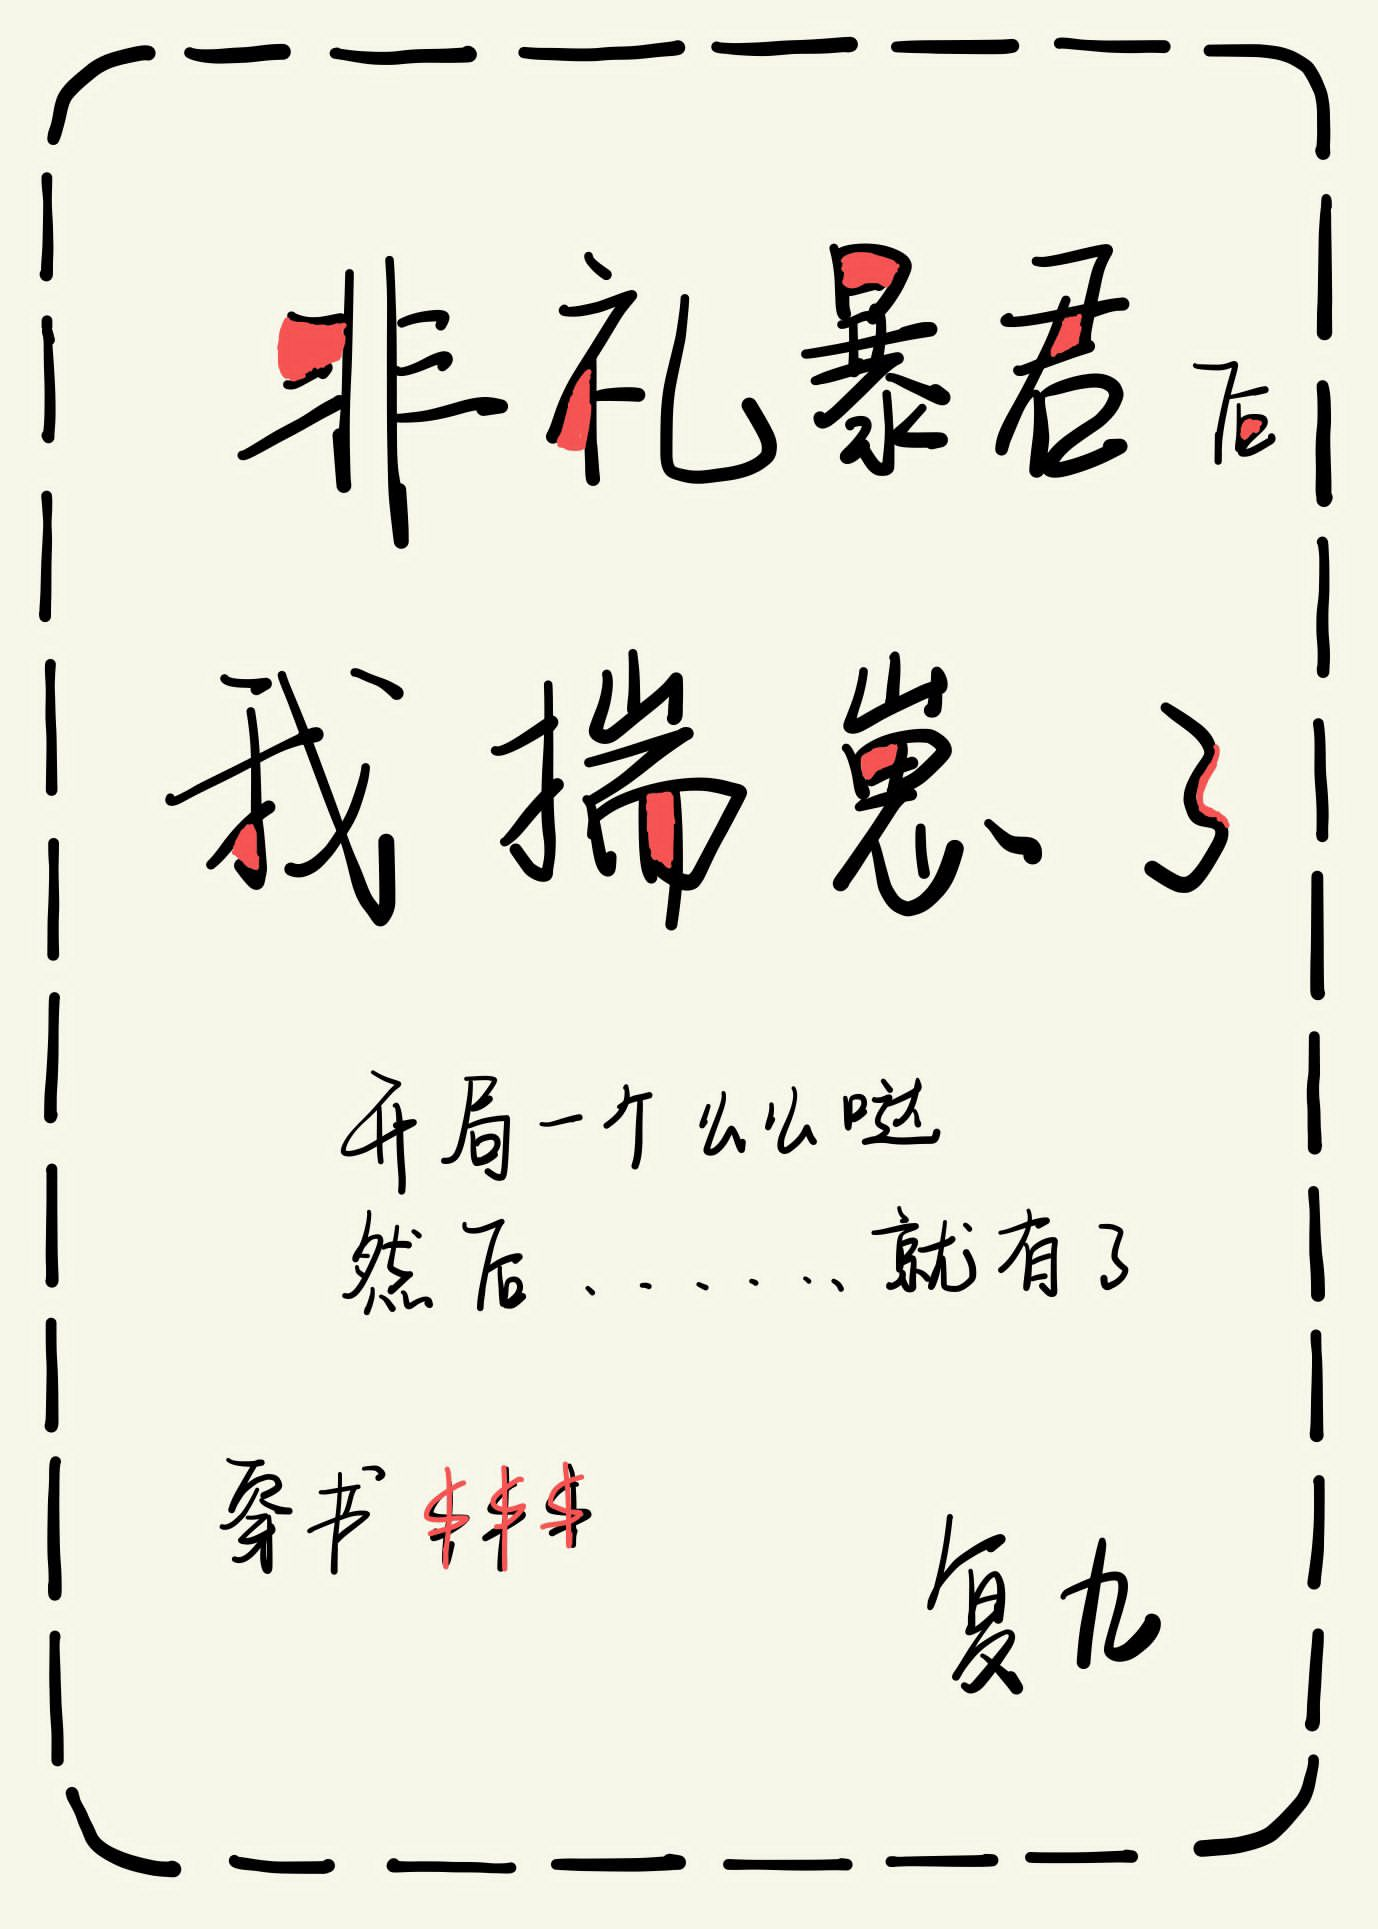 非礼暴君后
我揣崽了
开局一个么么哒
然后......就有了
穿书$$$
复九